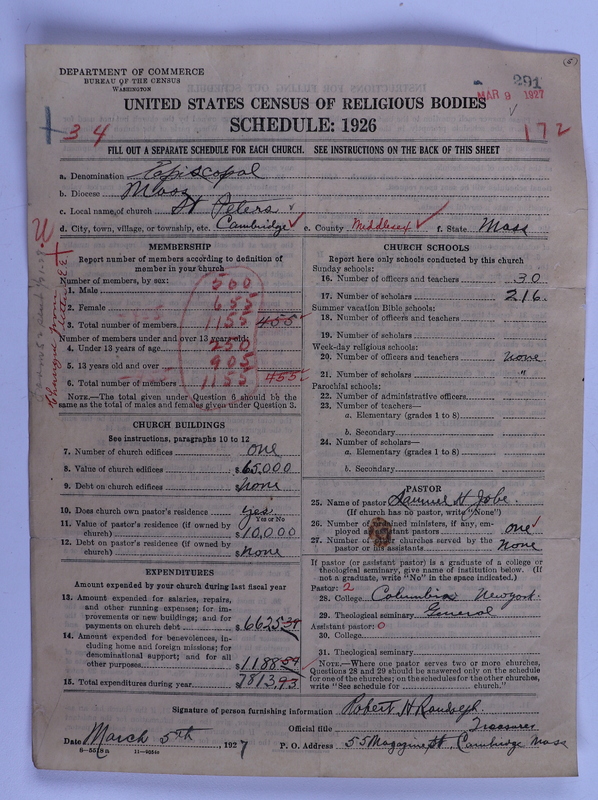 (5)
DEPARTMENT OF COMMERCE
BUREAU OF THE CENSUS
WASHINGTON
291
MAR 9 1927
UNITED STATES CENSUS OF RELIGIOUS BODIES
SCHEDULE: 1926
34
172
FILL OUT A SEPARATE SCHEDULE FOR EACH CHURCH. SEE INSTRUCTIONS ON THE BACK OF THIS SHEET
a. Denomination Episcopal
b. Diocese Mass
c. Local name of church St Peters
d. City, town, village, or township, etc. Cambridge e. County Middlesex f. State Mass
MEMBERSHIP
Report number of members according to definition of
member in your church
Number of members, by sex:
1. Male 500
2. Female 655
3. Total number of members 1155 455
Number of members under and over 13 years old:
4. Under 13 years of age 250
5. 13 years old and over 905
6. Total number of members 1155 455
NOTE.—The total given under Question 6 should be the
same as the total of males and females given under Question 3.
CHURCH BUILDINGS
See instructions, paragraphs 10 to 12
7. Number of church edifices one
8. Value of church edifices $65,000
9. Debt on church edifices $none
10. Does church own pastor's residence? yes
Yes or No
11. Value of pastor's residence (if owned by
church) $10,000
12. Debt on pastor's residence (if owned by
church) $none
EXPENDITURES
Amount expended by your church during last fiscal year
13. Amount expended for salaries, repairs,
and other running expenses; for im-
provements or new buildings; and for
payments on church debt $6625.39
14. Amount expended for benevolences, in-
cluding home and foreign missions; for
denominational support; and for all
other purposes $1188.54
15. Total expenditures during year $7813.93
CHURCH SCHOOLS
Report here only schools conducted by this church
Sunday schools:
16. Number of officers and teachers 30
17. Number of scholars 216
Summer vacation Bible schools:
18. Number of officers and teachers
19. Number of scholars
Week-day religious schools:
20. Number of officers and teachers none
21. Number of scholars "
Parochial schools:
22. Number of administrative officers
23. Number of teachers—
a. Elementary (grades 1 to 8)
b. Secondary
24. Number of scholars—
a. Elementary (grades 1 to 8)
b. Secondary
PASTOR
25. Name of pastor Samuel H Jobe.
(If church has no pastor, write "None")
26. Number of ordained ministers, if any, em-
ployed as assistant pastors one
27. Number of other churches served by the
pastor or his assistants None
If pastor (or assistant pastor) is a graduate of a college or
theological seminary, give name of institution below. (If
not a graduate, write "No" in the space indicated.)
Pastor: 2
28. College Columbia New york.
29. Theological seminary General
Assistant pastor: 0
30. College
31. Theological seminary
NOTE.—Where one pastor serves two or more churches,
Questions 28 and 29 should be answered only on the schedule
for one of the churches; on the schedules for the other churches,
write "See schedule for church."
Signature of person furnishing information Robert H Randolph
Official title Treasurer
Date March 5th, 1927 P. O. Address 55 Magazine St, Cambridge Mass
8—5518a 11—9051a